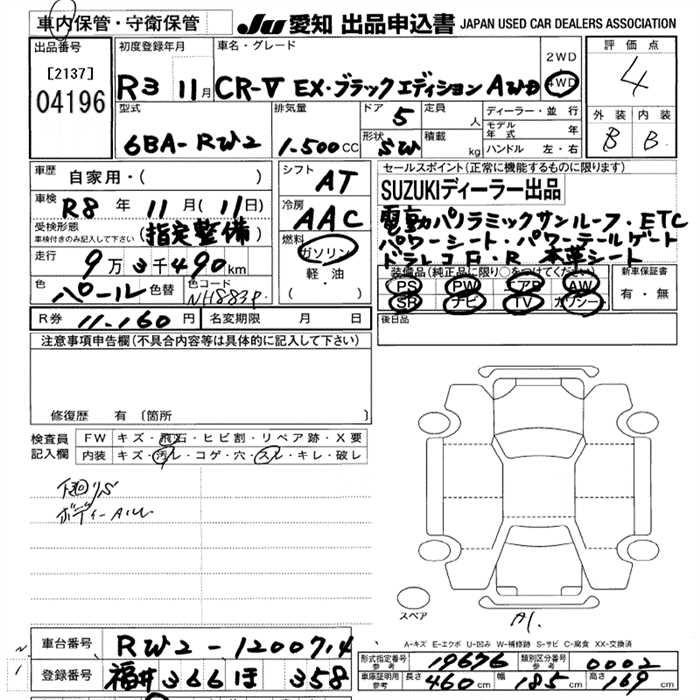 車内保管・守衛保管
JU 愛知 出品申込書 JAPAN USED CAR DEALERS ASSOCIATION
出品番号
[2137]
04196
初度登録年月
R3 11月
車名・グレード
CR-V EX・ブラックエディション AWD
2WD
4WD
評価点
4
型式
6BA-RW2
排気量
1.500CC
ドア
5
形状
SW
定員
人
積載
kg
ディーラー・並行
モデル年式 年
ハンドル 左・右
外装 内装
B B
車歴
自家用・( )
車検
R8年 11月(11日)
受検形態
車検付きのみ記入して下さい
(指定整備)
走行
9万3千490km
色
パール
色替
色コード
NH883P
シフト
AT
冷房
AAC
燃料
ガソリン
軽・油
・( )
セールスポイント(正常に機能するものに限ります)
SUZUKIディーラー出品
電動パノラミックサンルーフ・ETC
パワーシート・パワーテールゲート
ドラレコF・R 本革シート
装備品(純正品に限り○をつけてください)
PS PW エアB AW
SR ナビ TV カワシート
新車保証書
有・無
R券 11.160円
名変期限 月 日
後日品
注意事項申告欄(不具合内容等は具体的に記入して下さい)
修復歴 有 [箇所 ]
検査員記入欄
FW キズ・飛石・ヒビ割・リペア跡・X要
内装 キズ・汚レ・コゲ・穴・スレ・キレ・破レ
下廻リS
スペア
A1.
A-キズ E-エクボ U-凹み W-補修跡 S-サビ C-腐食 XX-交換済
車台番号
RW2-1200714
登録番号
福井 366 ほ 358
形式指定番号 参考
19676
類別区分番号 参考
0002
車庫証明用 参考
長さ 460cm 幅 185cm 高さ 169cm